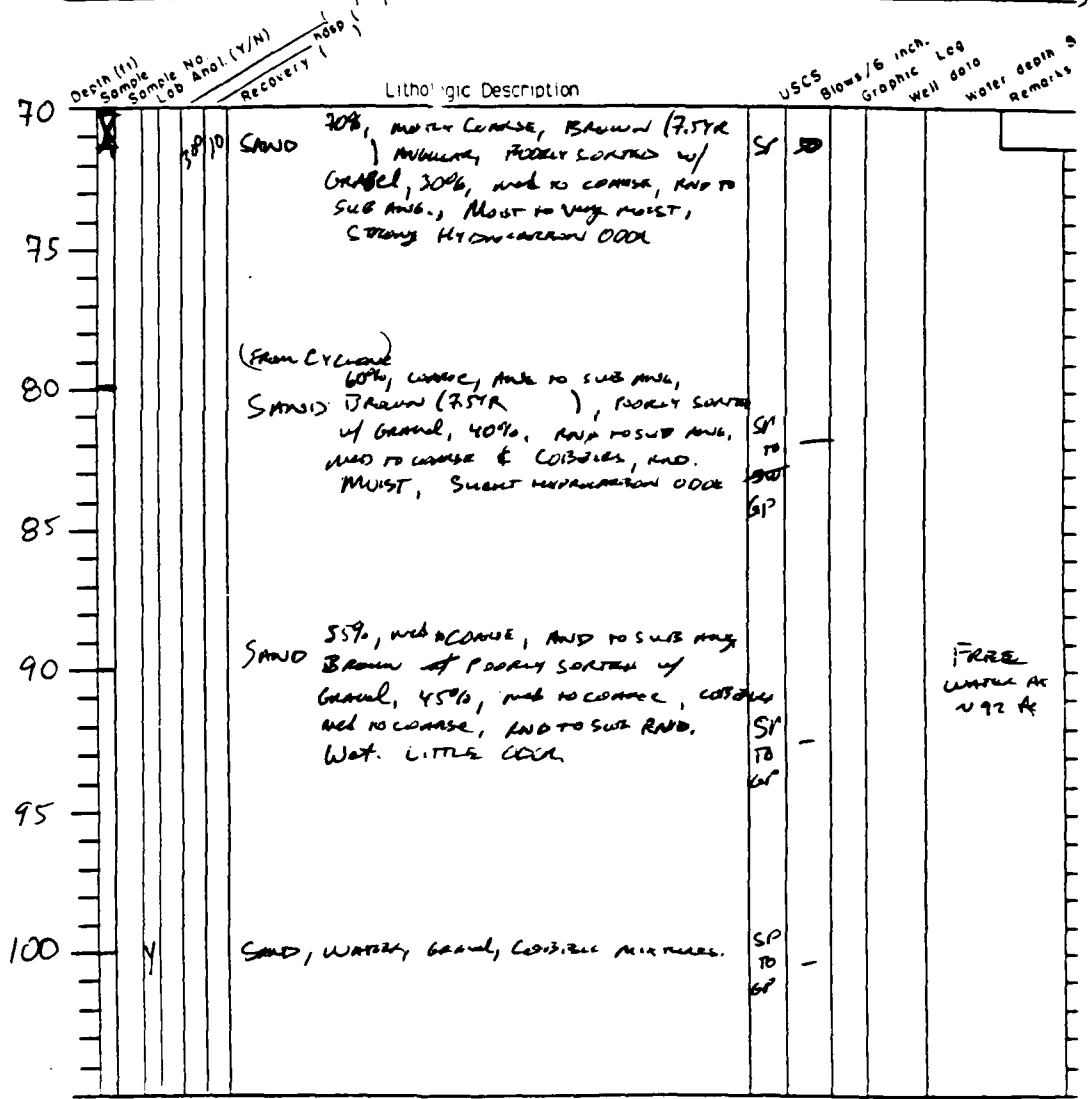 Depth (ft)
Sample
Sample No.
Lab Anal. (Y/N)
Recovery (
Lithologic Description
USCS
Blows/6 inch.
Graphic Log
Well data
Water depth
Remarks
70
SAND 70%, MOSTLY COARSE, BROWN (7.5YR
) ANGULAR, POORLY SORTED w/
GRAVEL, 30%, med to COARSE, RND TO
SUB ANG., MOIST to Very MOIST,
STRONG HYDROCARBON ODOR
SP
50
75
(FROM CYCLONE)
60%, COARSE, ANG TO SUB ANG,
80
SAND BROWN (7.5YR ), POORLY SORTED
w/ GRAVEL, 40%, RND TO SUB ANG,
MED TO COARSE & COBBLES, RND.
MOIST, SLIGHT HYDROCARBON ODOR
SP
TO
SW
GP
85
SAND 55%, med to COARSE, RND TO SUB ANG
90
BROWN POORLY SORTED w/
GRAVEL, 45%, med to COARSE, COBBLES
med to COARSE, RND TO SUB RND.
Wet. LITTLE ODOR
SP
TO
GP
FREE
WATER AT
~92 ft
95
100
Y
SAND, WATER, GRAVEL, COBBLE MIXTURES.
SP
TO
GP